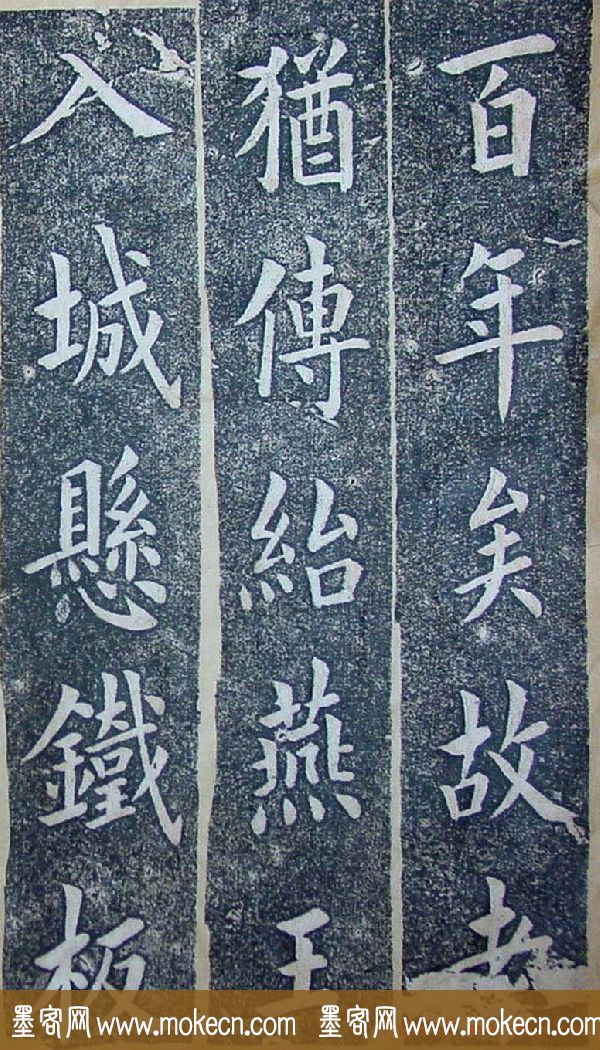 百年矣故老
猶傳紿燕王
入城懸鐵板
墨客网 www.mokecn.com 墨客网 www.mokecn.com